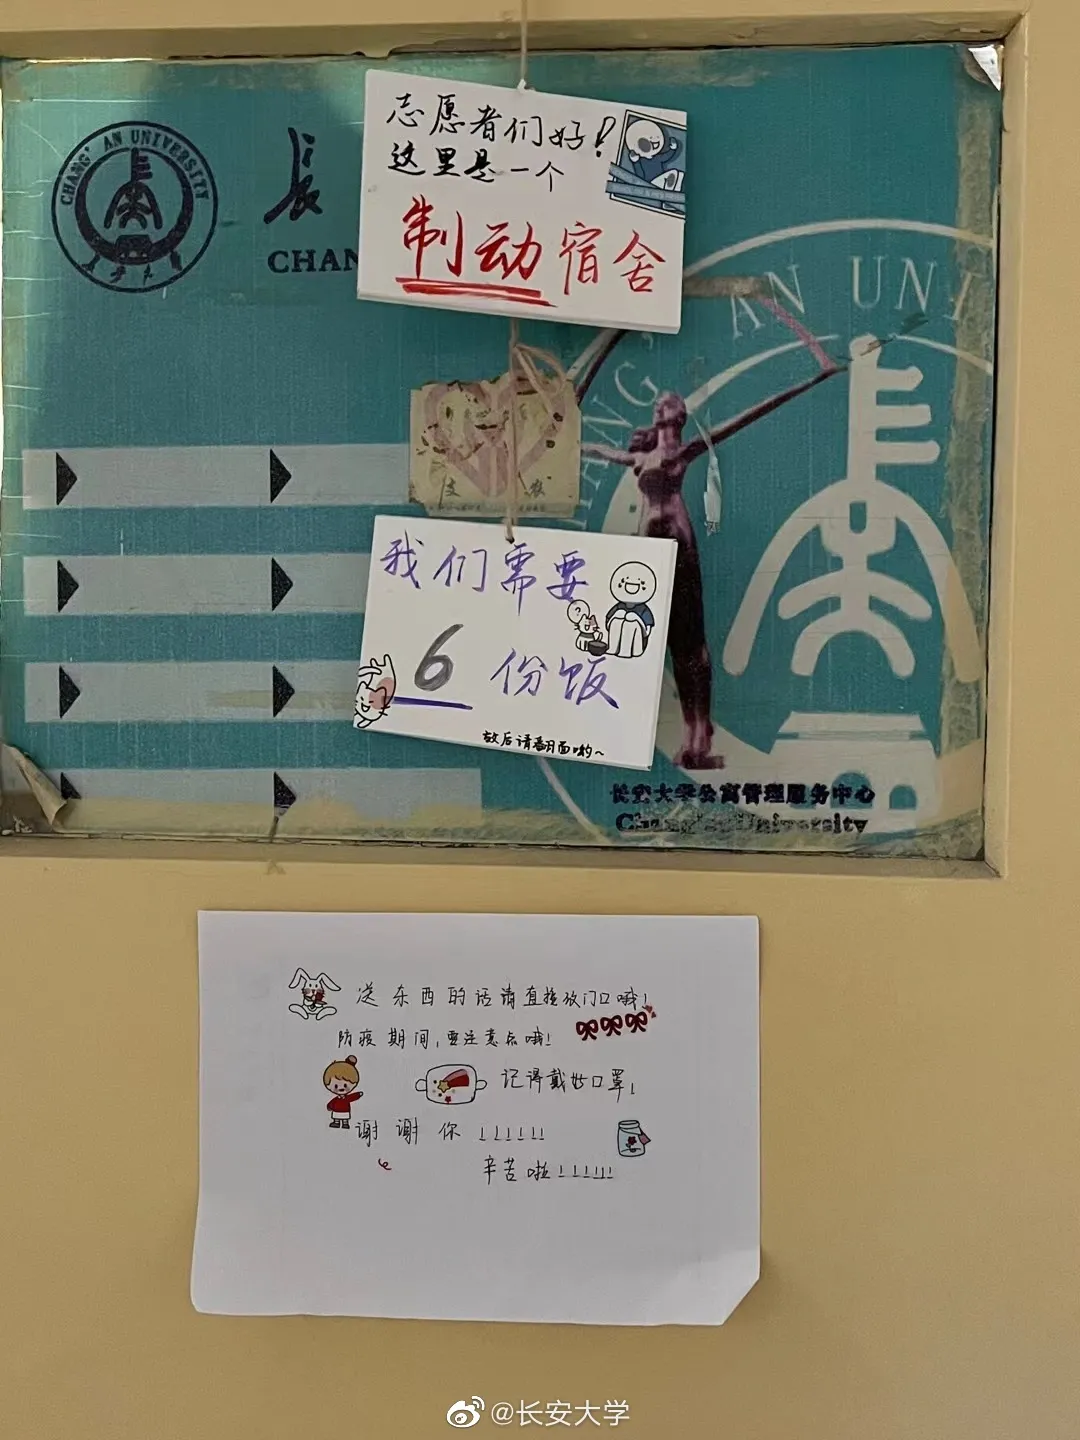 CHANG'AN UNIVERSITY
长
CHAN
志愿者们好!
这里是一个
制动宿舍
ANG' AN UNI
我们需要
6 份饭
放后请翻面哟~
长安大学公寓管理服务中心
Chang'an University
送东西的话请直接放门口哦!
防疫期间,要注意点哦!
记得戴好口罩!
谢谢你!!!!!!
辛苦啦!!!!!!
@长安大学